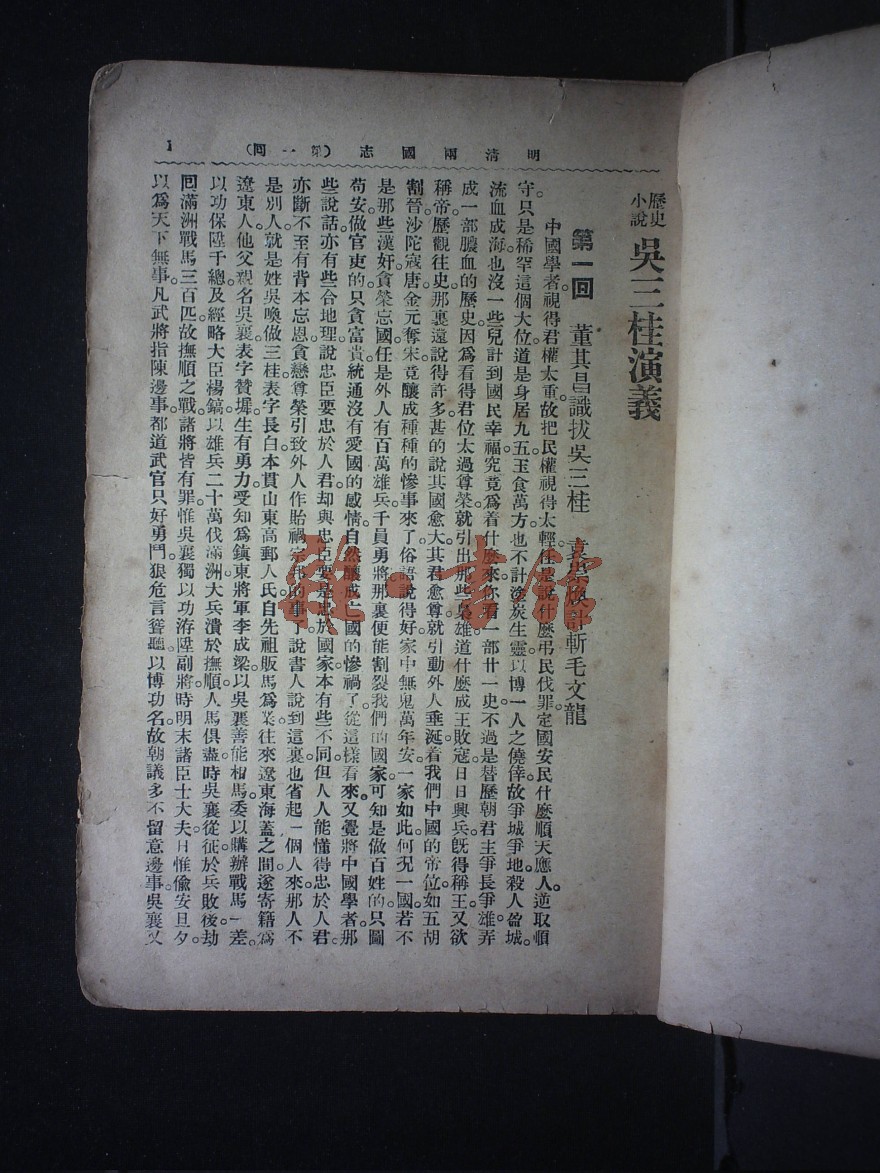 明清兩國志（第一回） 1
歷史小說 吳三桂演義
第一回 董其昌識拔吳三桂 袁崇煥計斬毛文龍
中國學者。視得君權太重。故把民權視得太輕。任是說什麼弔民伐罪。定國安民。什麼順天應人。逆取順
守。只是稀罕這個大位。道是身居九五。玉食萬方。也不計塗炭生靈。以博一人之僥倖。故爭城爭地。殺人盈城。
流血成海。也沒一些兒計到國民幸福。究竟爲着什麼來。你看一部廿一史。不過是替歷朝君主爭長爭雄。弄
成一部膿血的歷史。因爲看得君位太過尊榮。就引出那些梟雄。道什麼成王敗寇。日日興兵。旣得稱王。又欲
稱帝。歷觀往史。那裏還說得許多。甚的說其國愈大。其君愈尊。就引動外人垂涎着我們中國的帝位。如五胡
割晉。沙陀寇唐。金元奪宋。竟釀成種種的慘事來了。俗語說得好。家中無鬼萬年安。一家如此。何況一國。若不
是那些漢奸。貪榮忘國。任是外人有百萬雄兵。千員勇將。那裏便能割裂我們的國家。可知是做百姓的。只圖
苟安。做官吏的。只貪富貴。統通沒有愛國的感情。自然釀成亡國的慘禍了。從這樣看來。又覺將中國學者。那
些說話。亦有些合地理。說忠臣要忠於人君。却與忠臣要是忠於國家。本有些不同。但人人能懂得忠於人君。
亦斷不至有背本忘恩。貪戀尊榮。引致外人。作貽禍宗邦的事了。說書人說到這裏。也省起一個人來。那人不
是別人。就是姓吳喚做三桂。表字長白。本貫山東高郵人氏。自先祖販馬爲業。往來遼東海蓋之間。遂寄籍爲
遼東人。他父親名吳襄。表字贊墀。生有勇力。受知爲鎮東將軍李成梁。以吳襄善能相馬。委以購辦戰馬一差。
以功保陞千總。及經略大臣楊鎬。以雄兵二十萬伐滿洲。大兵潰於撫順。人馬俱盡。時吳襄從征。於兵敗後。刧
回滿洲戰馬三百匹。故撫順之戰。諸將皆有罪。惟吳襄獨以功洊陞副將。時明末諸臣士大夫。日惟偸安旦夕。
以爲天下無事。凡武將指陳邊事。都道武官只好勇鬥狠。危言聳聽。以博功名。故朝議多不留意邊事。吳襄又